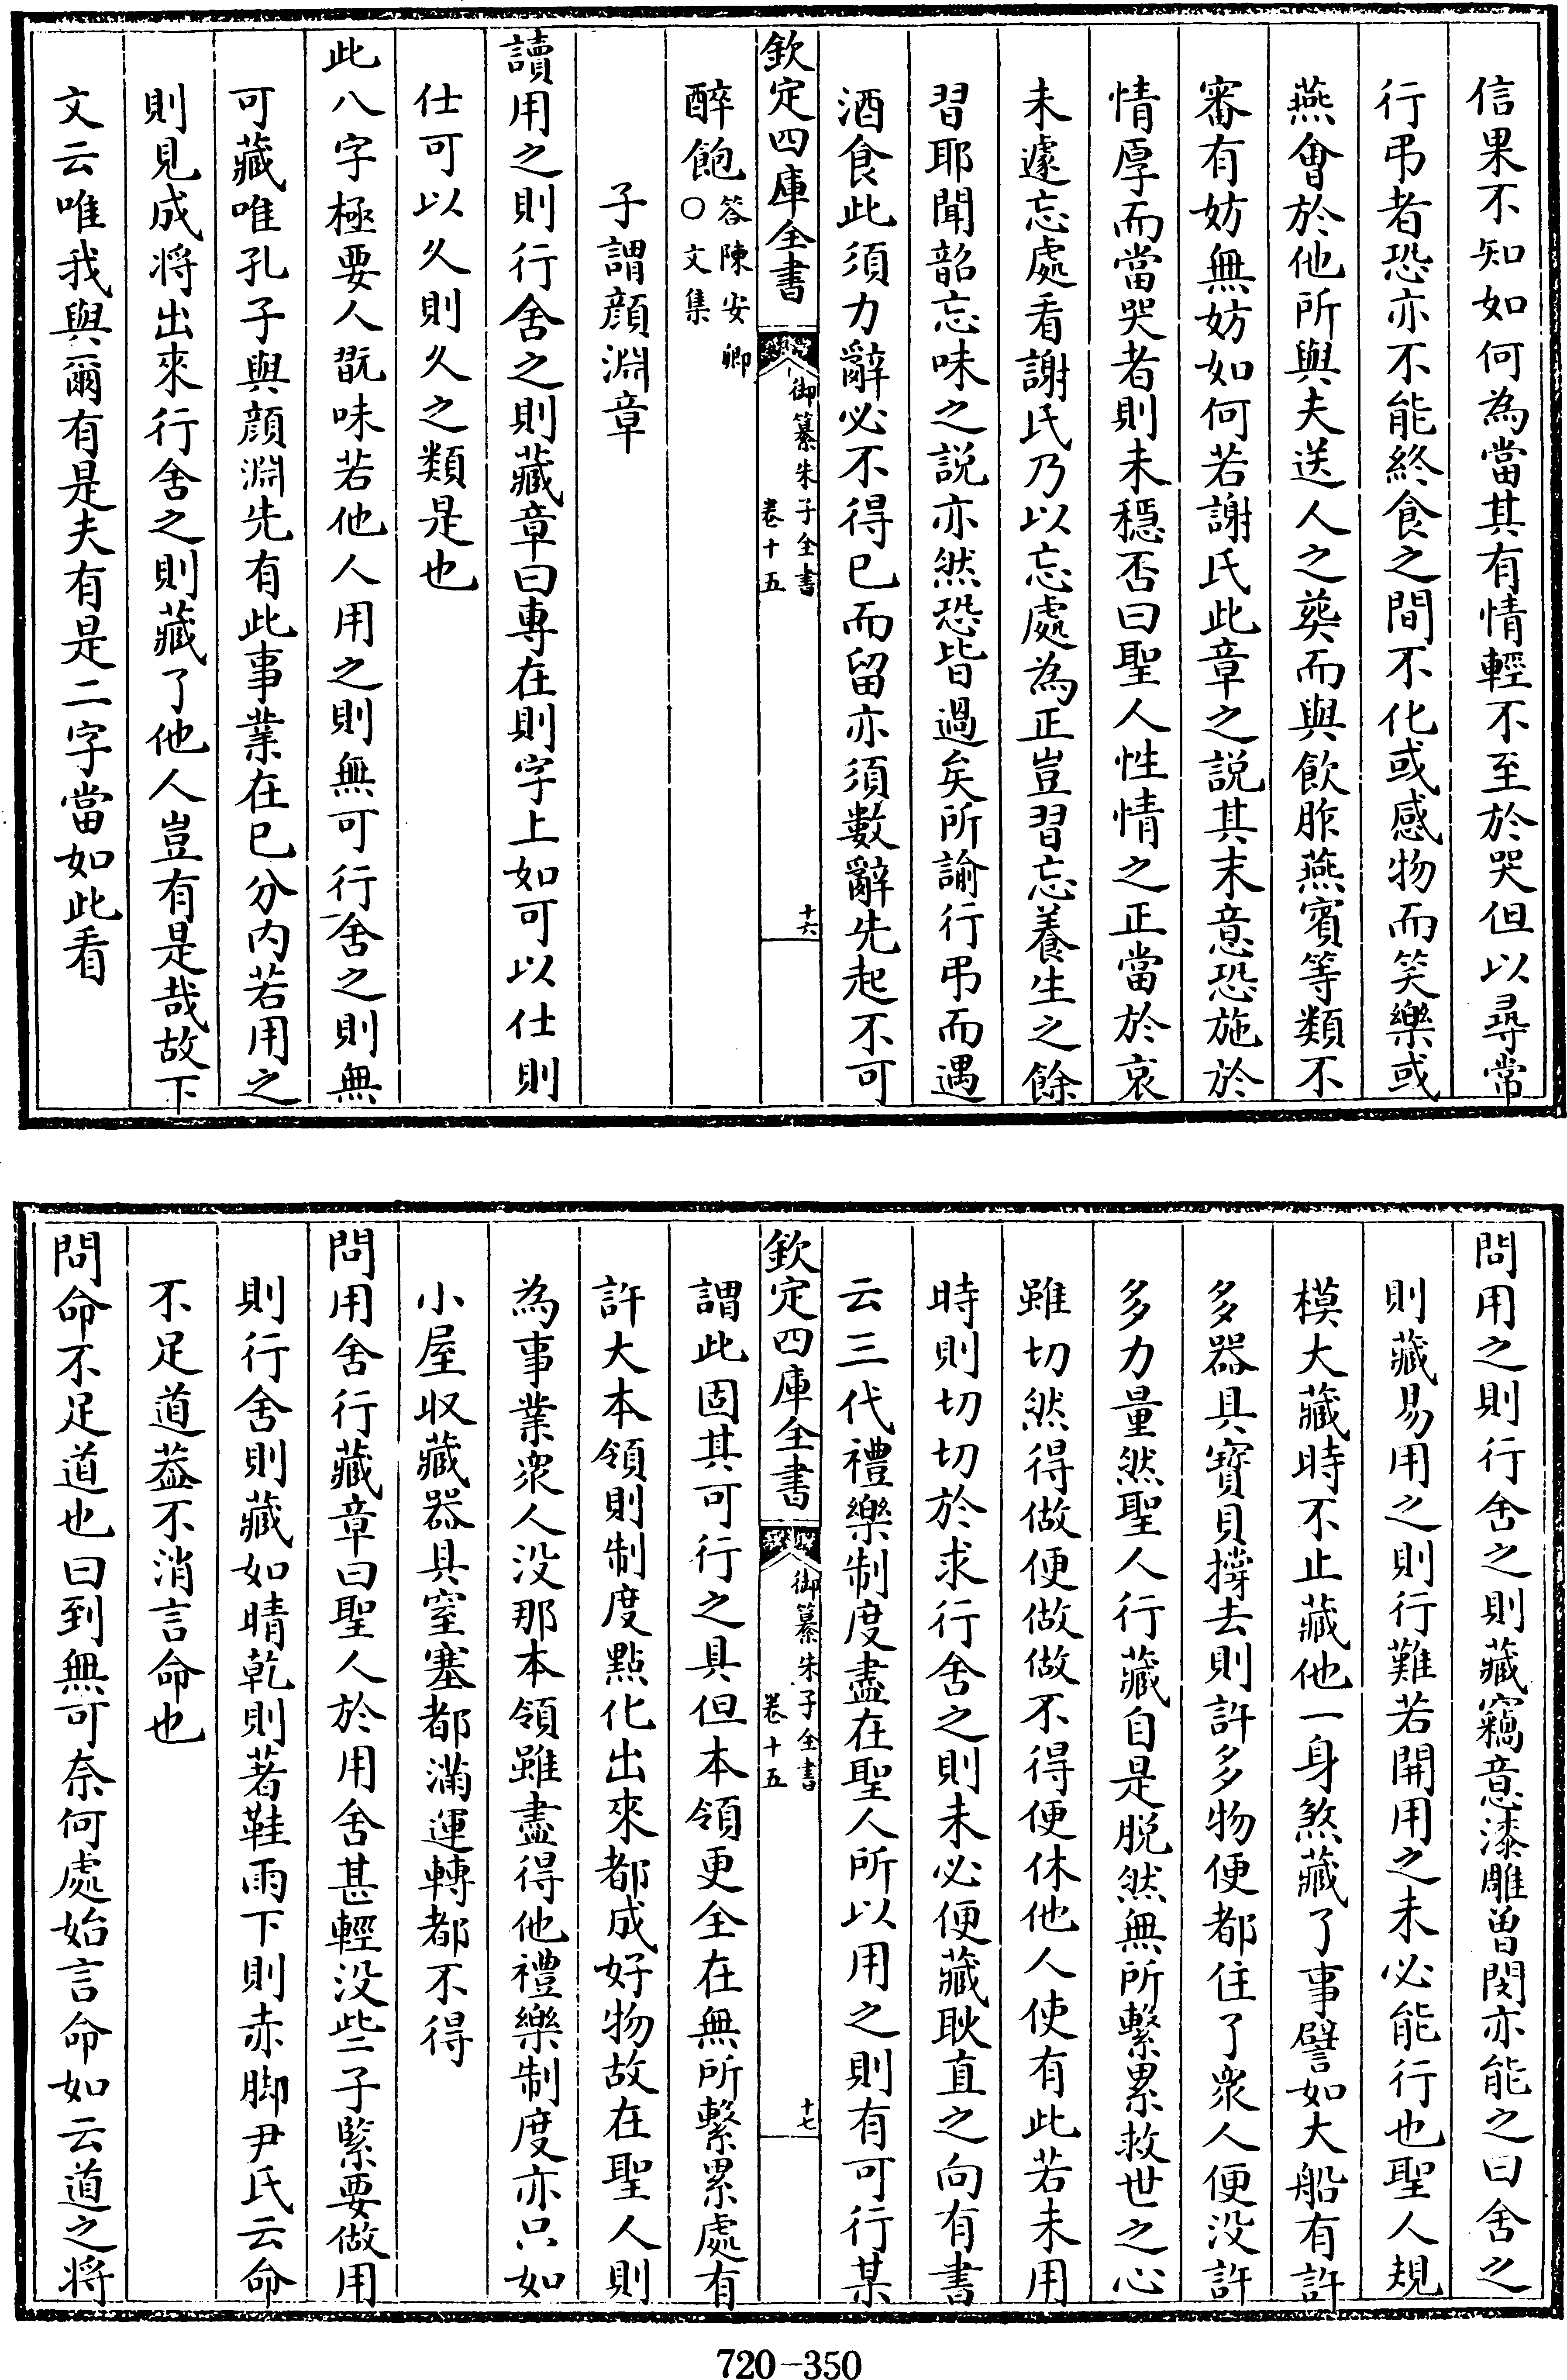 信果不知如何為當其有情輕不至於哭但以尋常
行弔者恐亦不能終食之間不化或感物而笑樂或
燕會於他所與夫送人之葬而與飲胙燕賓等類不
審有妨無妨如何若謝氏此章之說其末意恐施於
情厚而當哭者則未穩否曰聖人性情之正當於哀
未遽忘處看謝氏乃以忘處為正豈習忘養生之餘
習耶聞韶忘味之説亦然恐皆過矣所諭行弔而遇
酒食此須力辭必不得已而留亦須數辭先起不可
欽定四庫全書
御纂朱子全書
卷十五
十六
醉飽答陳安卿
○文集
子謂顔淵章
讀用之則行舍之則藏章曰專在則字上如可以仕則
仕可以久則久之類是也
此八字極要人翫味若他人用之則無可行舍之則無
可藏唯孔子與顔淵先有此事業在已分内若用之
則見成將出來行舍之則藏了他人豈有是哉故下
文云唯我與爾有是夫有是二字當如此看
問用之則行舍之則藏竊意漆雕曽閔亦能之曰舍之
則藏易用之則行難若開用之未必能行也聖人規
模大藏時不止藏他一身煞藏了事譬如大船有許
多器具寶貝撑去則許多物便都住了衆人便没許
多力量然聖人行藏自是脱然無所繫累救世之心
雖切然得做便做做不得便休他人使有此若未用
時則切切於求行舍之則未必便藏耿直之向有書
云三代禮樂制度盡在聖人所以用之則有可行某
欽定四庫全書
御纂朱子全書
卷十五
十七
謂此固其可行之具但本領更全在無所繫累處有
許大本領則制度點化出來都成好物故在聖人則
為事業衆人没那本領雖盡得他禮樂制度亦只如
小屋収藏器具窒塞都滿運轉都不得
問用舍行藏章曰聖人於用舍甚輕没些子緊要做用
則行舍則藏如晴乾則著鞋雨下則赤脚尹氏云命
不足道葢不消言命也
問命不足道也曰到無可奈何處始言命如云道之將
720-350